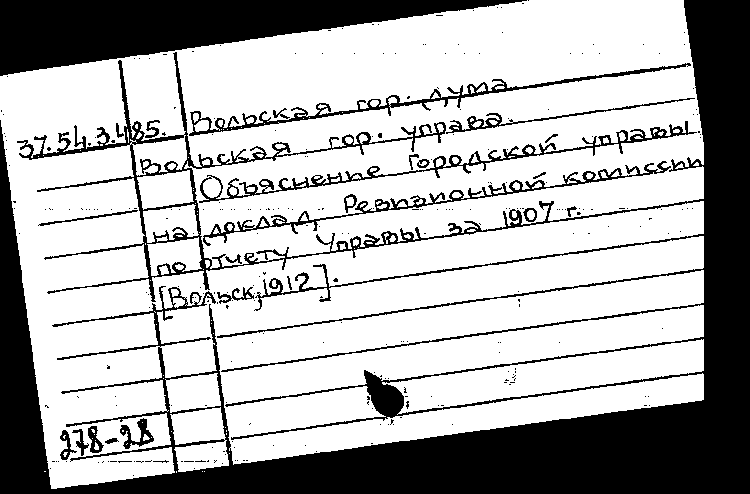 37.54.3.485. Вольская гор. дума
Вольская гор. управа.
Объяснение Городской управы
на доклад Ревизионной комиссии
по отчету Управы за 1907 г.
[Вольск, 1912].
278-28